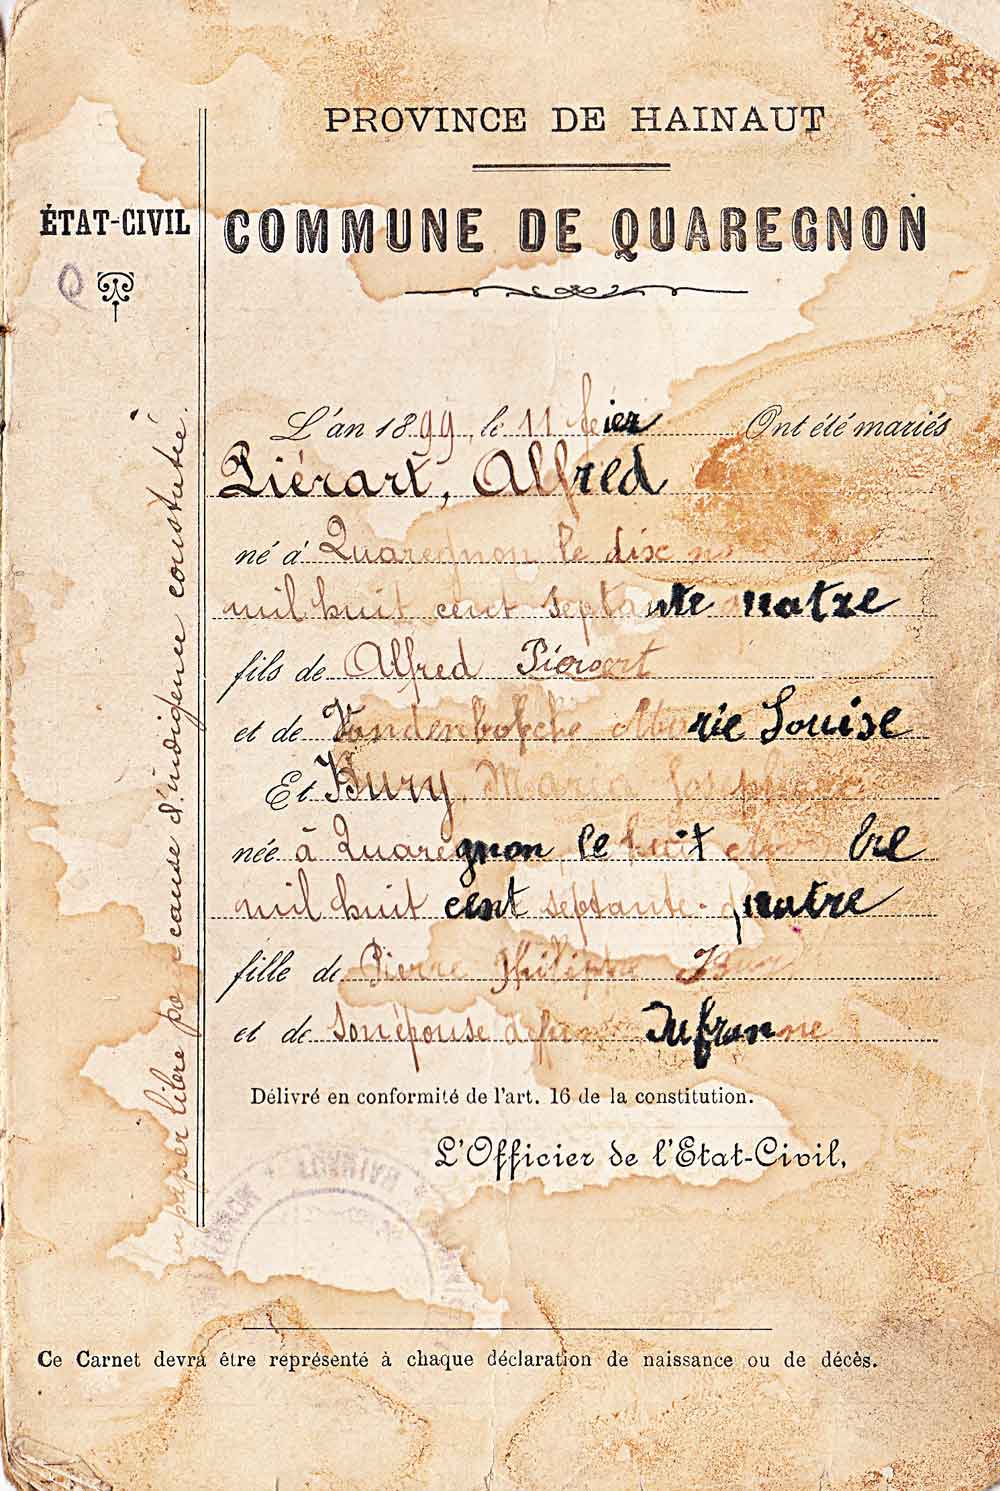 PROVINCE DE HAINAUT
ÉTAT-CIVIL
COMMUNE DE QUAREGNON
L'an 1899, le 11 Ont été mariés
Piérart, Alfred
né à Quaregnon le dix
mil huit cent septante quatre
fils de Alfred Piérart
et de Marie Louise
Et Bury, Maria
née à Quaregnon, le huit
mil huit cent septante-quatre
fille de Pierre Philippe Bury
et de son épouse Dufranne
Délivré en conformité de l'art. 16 de la constitution.
L'Officier de l'Etat-Civil,
HAINAUT
Ce Carnet devra être représenté à chaque déclaration de naissance ou de décès.
papier libre cause d'indigence constatée.